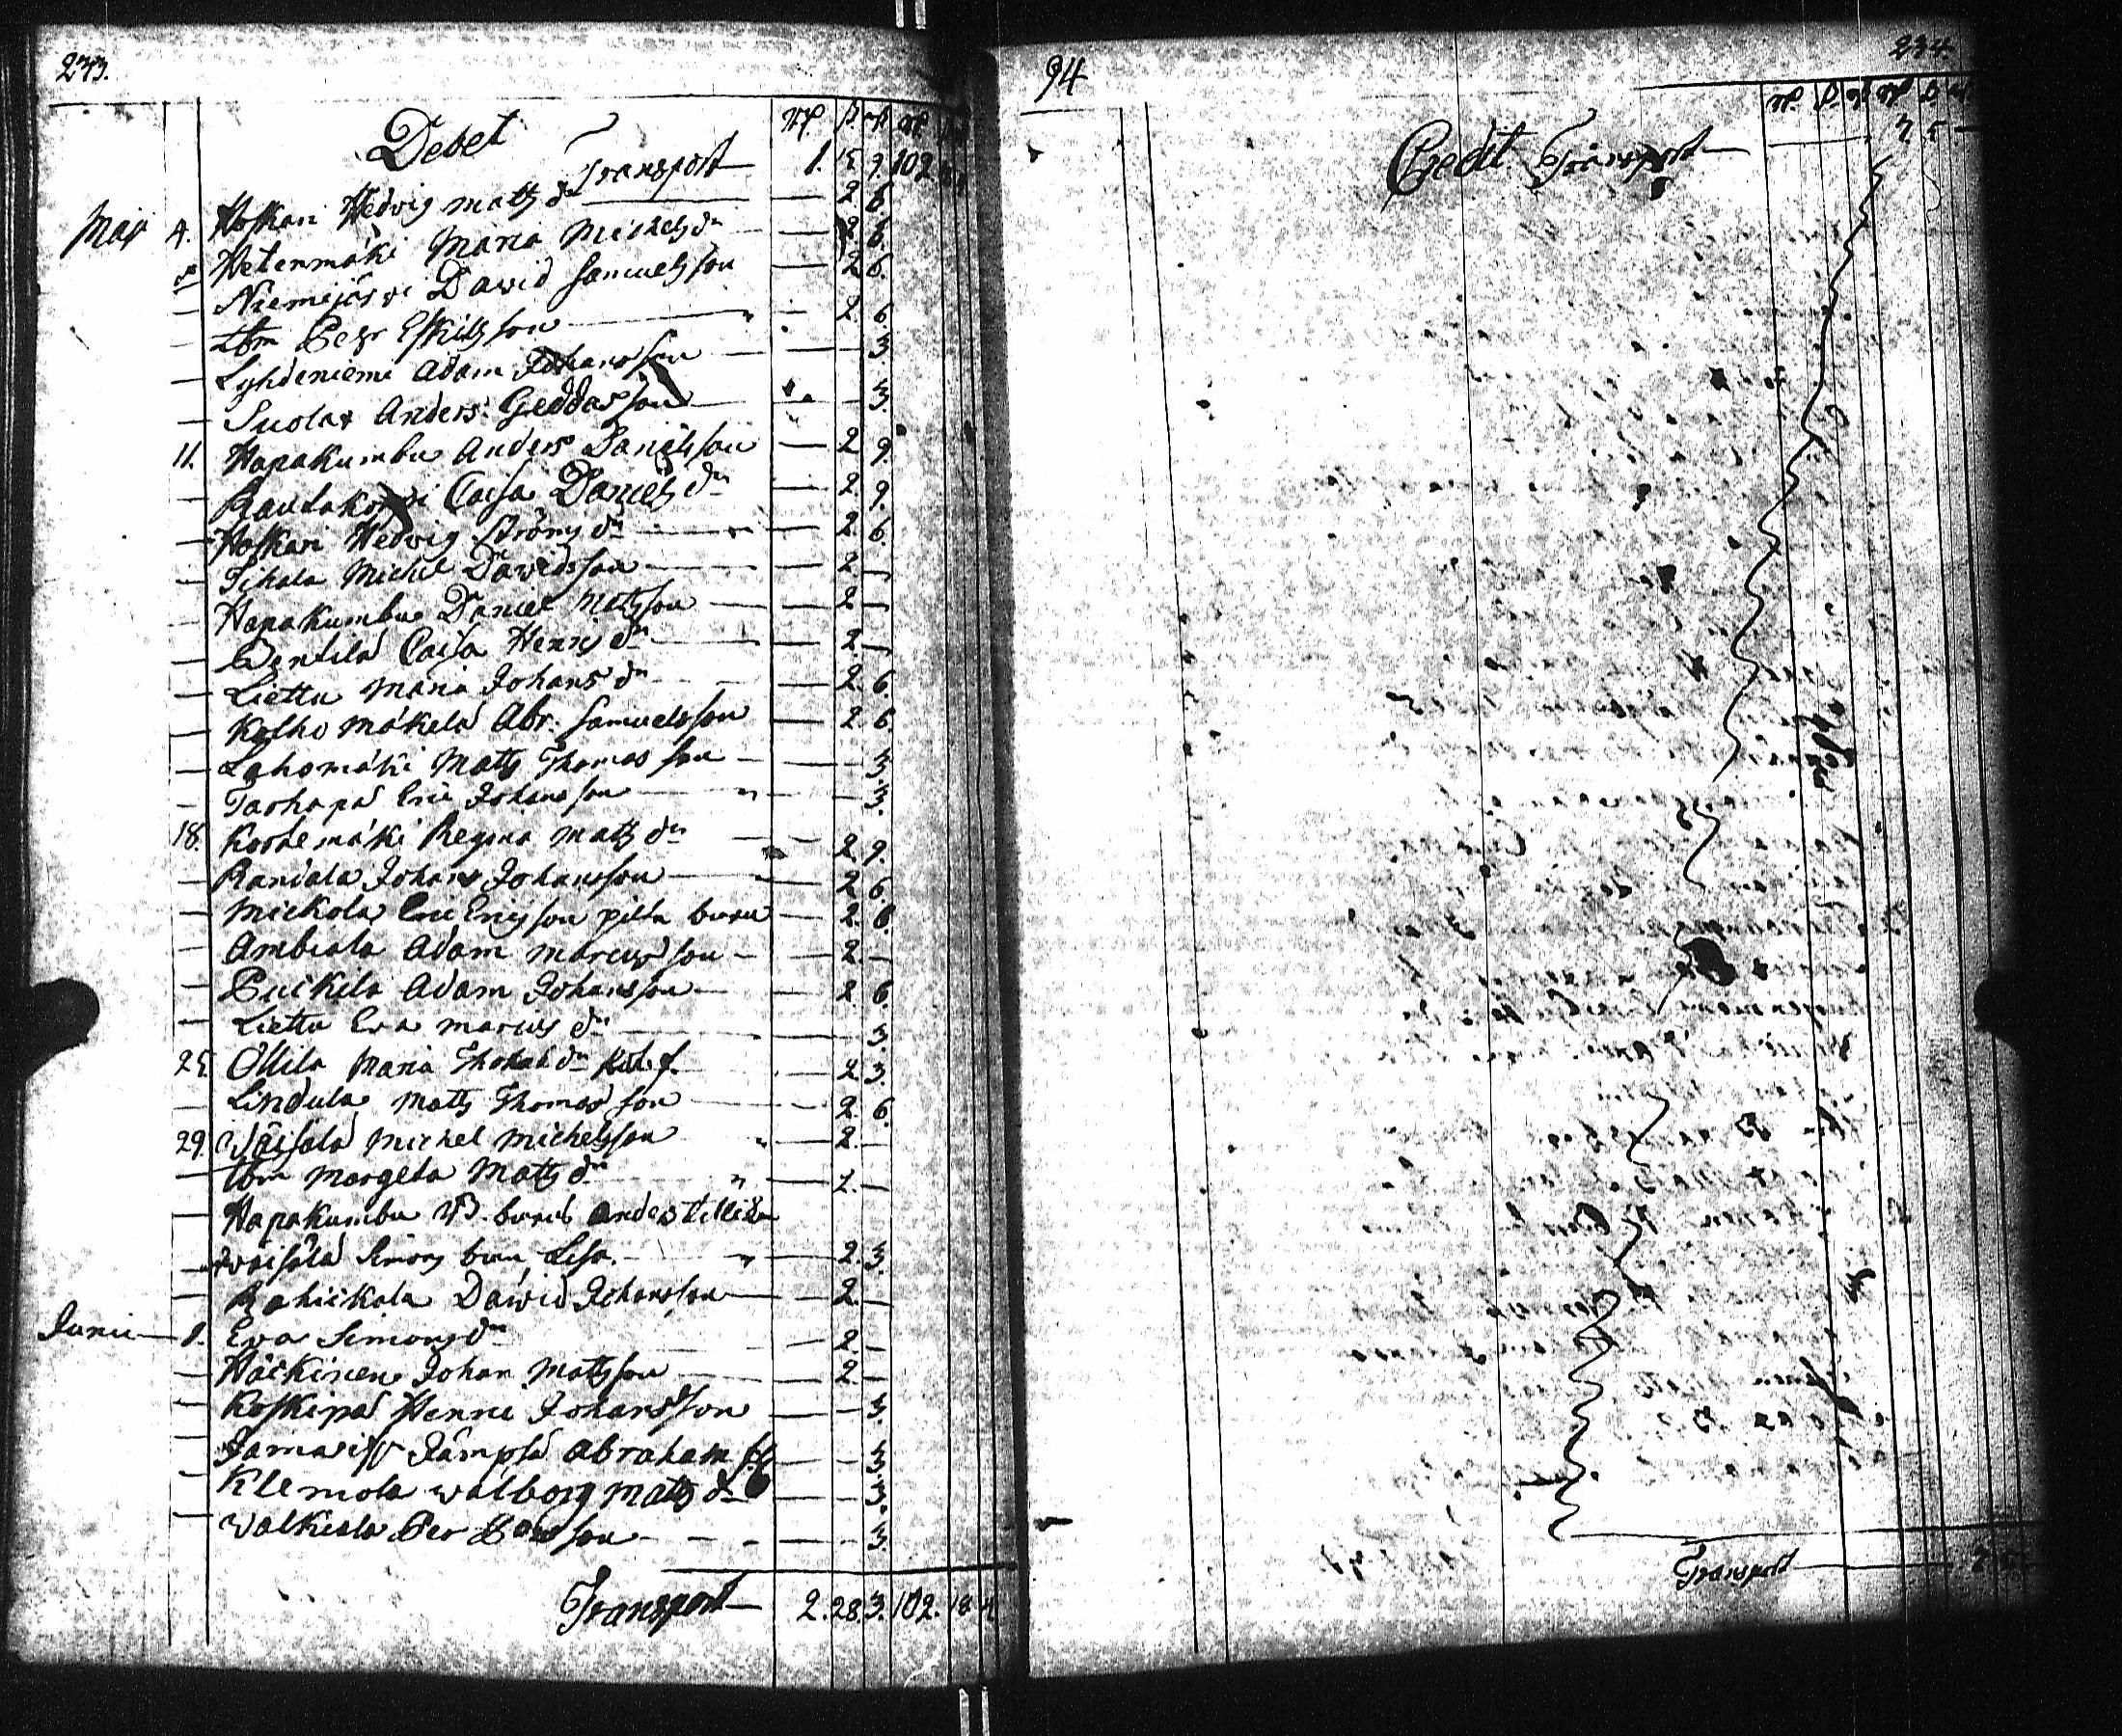 233.
Debet
Transport — 1. 15 9. 102. 18
Maji 4. Hoskari Hedvig Matts dr — 2. 6
5 Hetenmäki Maria Michels dr — 2. 6.
— Niemijärvi David Samuelsson — 2 6.
— ibm Pehr Eskilsson — 2 6
— Lyhdeniemi Adam Johansson — 3.
— Suolax Anders Geddasson — 3.
11. Hapakumbu Anders Danielsson — 2 9.
— Raudakorpi Caisa Daniels dr — 2. 9.
— Hoskari Hedvig Ströms dr — 2. 6.
— Michel Davidsson — 2. —
— Hapakumbu Daniel Mattsson — 2 —
— Pentilä Caisa Henrs dr — 2. —
— Liettu Maria Johans dr — 2. 6.
— Kolho Mäkelä Abr. Samuelsson — 2. 6.
— Lahomäki Matts Thomas son — 3.
— Tarhapä Eric Johansson — 3.
18. Koskemäki Regina Matts dr — 2. 9.
— Raniala Johans Johansson — 2 6
— Mickola Eric Ericsson pilta barn — 2. 6.
— Ambiala Adam Marcusson — 2. —
— Puikila Adam Johansson — 2 6.
— Liettu Eva Marcus dr — 3.
25. Ollila Maria Thomas dr — 2. 3.
— Lindula Matts Thomas son — 2. 6.
29. Wäisälä Michel Michelsson — 2. —
— ibm Margeta Matts dr — 2. —
— Hapakumbu barnb Anders
— Wäisälä Simons barn Lisa — 2. 3.
— Rahickala David Johansson — 2. —
Junii 1. Eva Simons dr — 2. —
— Häckinen Johan Mattsson — 2. —
— Koskipä Henric Johansson — 3
— Jämpsä Abraham — 3
— Klemola Walborg Matts dr — 3.
— Walkiala Per — 3.
Transport — 2. 28 3. 102. 18 4
94
234.
Credit Transport — 7. 5 —
Transport — 7. 5